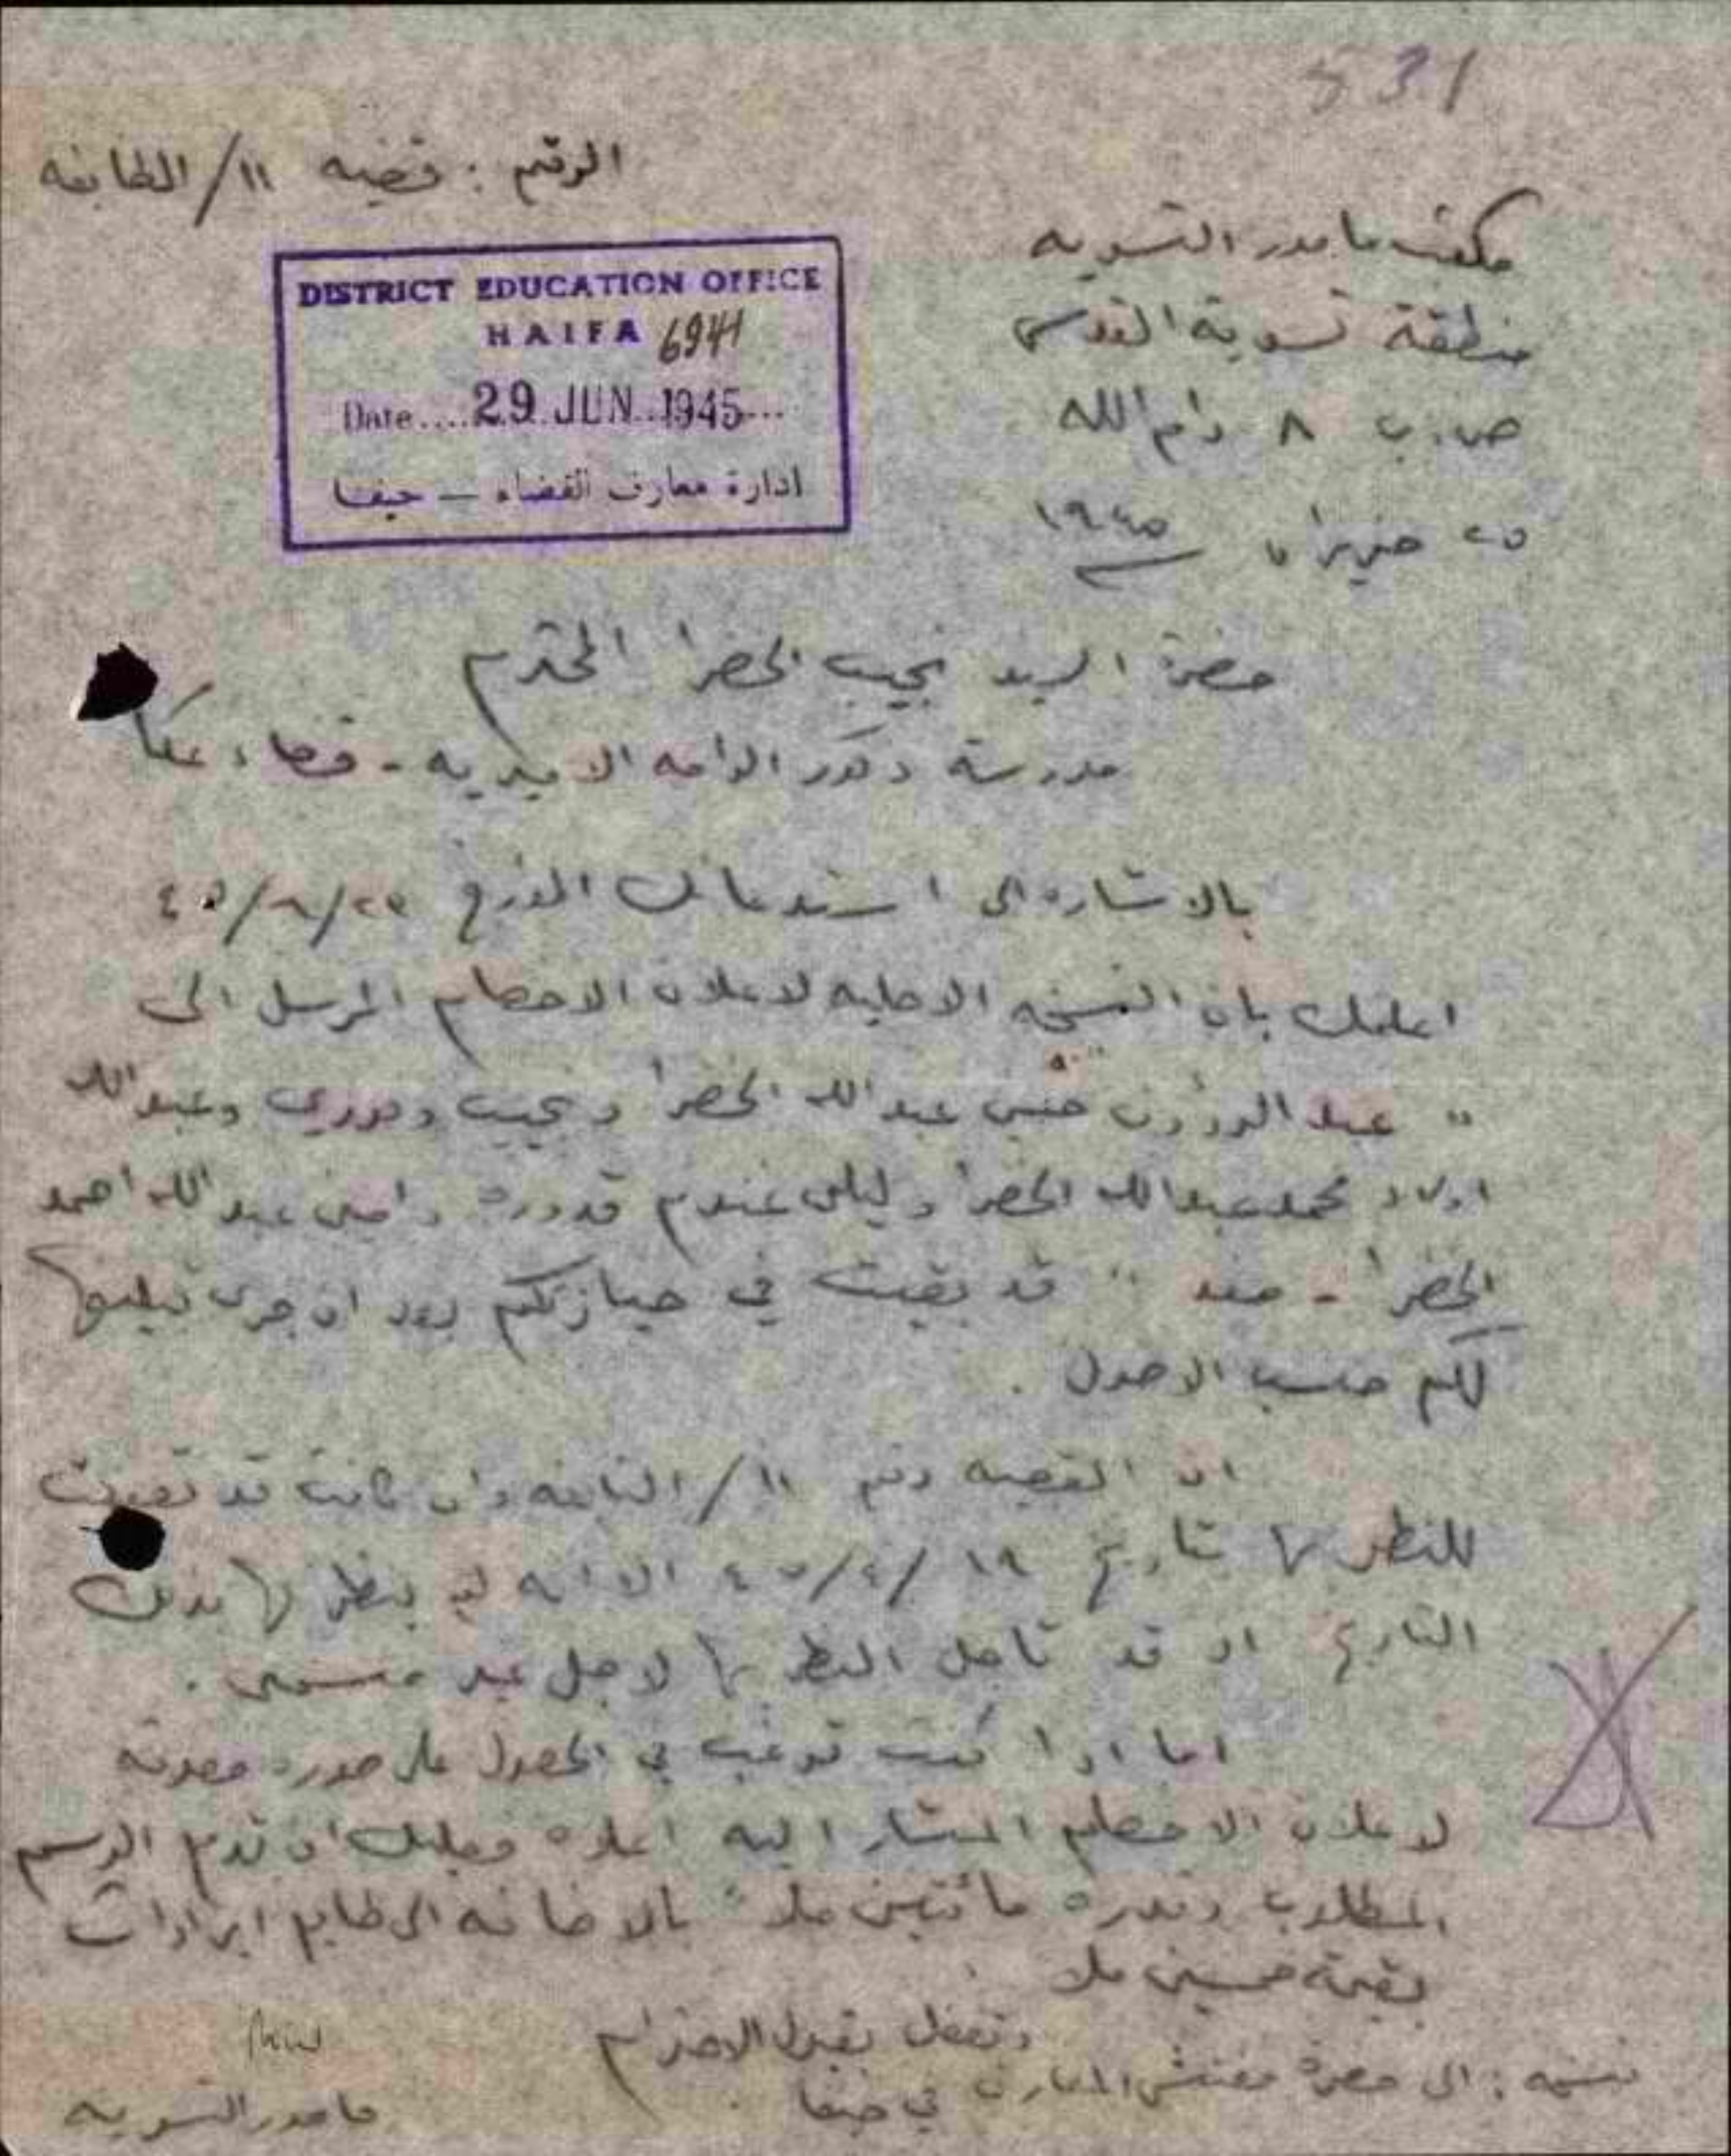 531
الرقم : قضيه ١١/الطابغه
مكتب مامور التسويه
منطقة تسوية القدس
ص.ب ٨ رام الله
٢٥ حزيران ١٩٤٥
DISTRICT EDUCATION OFFICE
HAIFA 6941
Date.... 29 JUN 1945...
ادارة معارف القضاء — حيفا
حضرة السيد نجيب الخضرا المحترم
مدرسة ذكور الرامه الاميريه - قضاء عكا
بالاشاره الى استدعائك المؤرخ
اعلمك بان النسخه الاصليه لاعلان الاخصام المرسل الى
" عبد الرؤوف حسني عبد الله الخضرا ونجيب وفوزي وعبد الله
اولاد محمد عبد الله الخضرا وليلى قدوره وامين عبد الله احمد
الخضرا - صفد " قد بقيت في حيازتكم بعد ان جرى تبليغها
لكم حسب الاصول .
ان القضيه رقم ١١/الطابغه وان كانت قد تعينت
للنظر بها بتاريخ ١٩/٤/٤٥ الا انه لم ينظر بها بذلك
التاريخ اذ قد تاجل النظر بها لاجل غير مسمى .
اما اذا كنت ترغب في الحصول على صوره مصدقه
لاعلان الاخصام المشار اليه اعلاه فعليك ان تدفع الرسم
المطلوب وقدره مائتين ملا بالاضافه الى طابع ايرادات
بقيمة خمسين ملا .
وتفضل بقبول الاحترام
مامور التسويه
نسخه : الى حضرة مفتش المعارف في حيفا